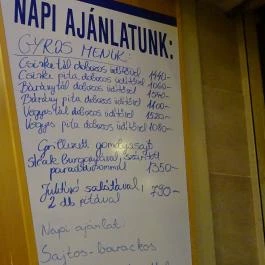 NAPI AJÁNLATUNK:
GYROS MENÜK:
Csirke tál dobozos üdítővel 1440-
Csirke pita dobozos üdítővel 1060-
Bárány tál dobozos üdítővel 1540-
Bárány pita dobozos üdítővel 1100-
Vegyes tál dobozos üdítővel 1520-
Vegyes pita dobozos üdítővel 1080-
Grillezett gomolyasajt
steak burgonyával, szárított
paradicsommal 1350-
Juhtúró salátával,
2 db pitával 790-
Napi ajánlat:
Sajtos-barackos